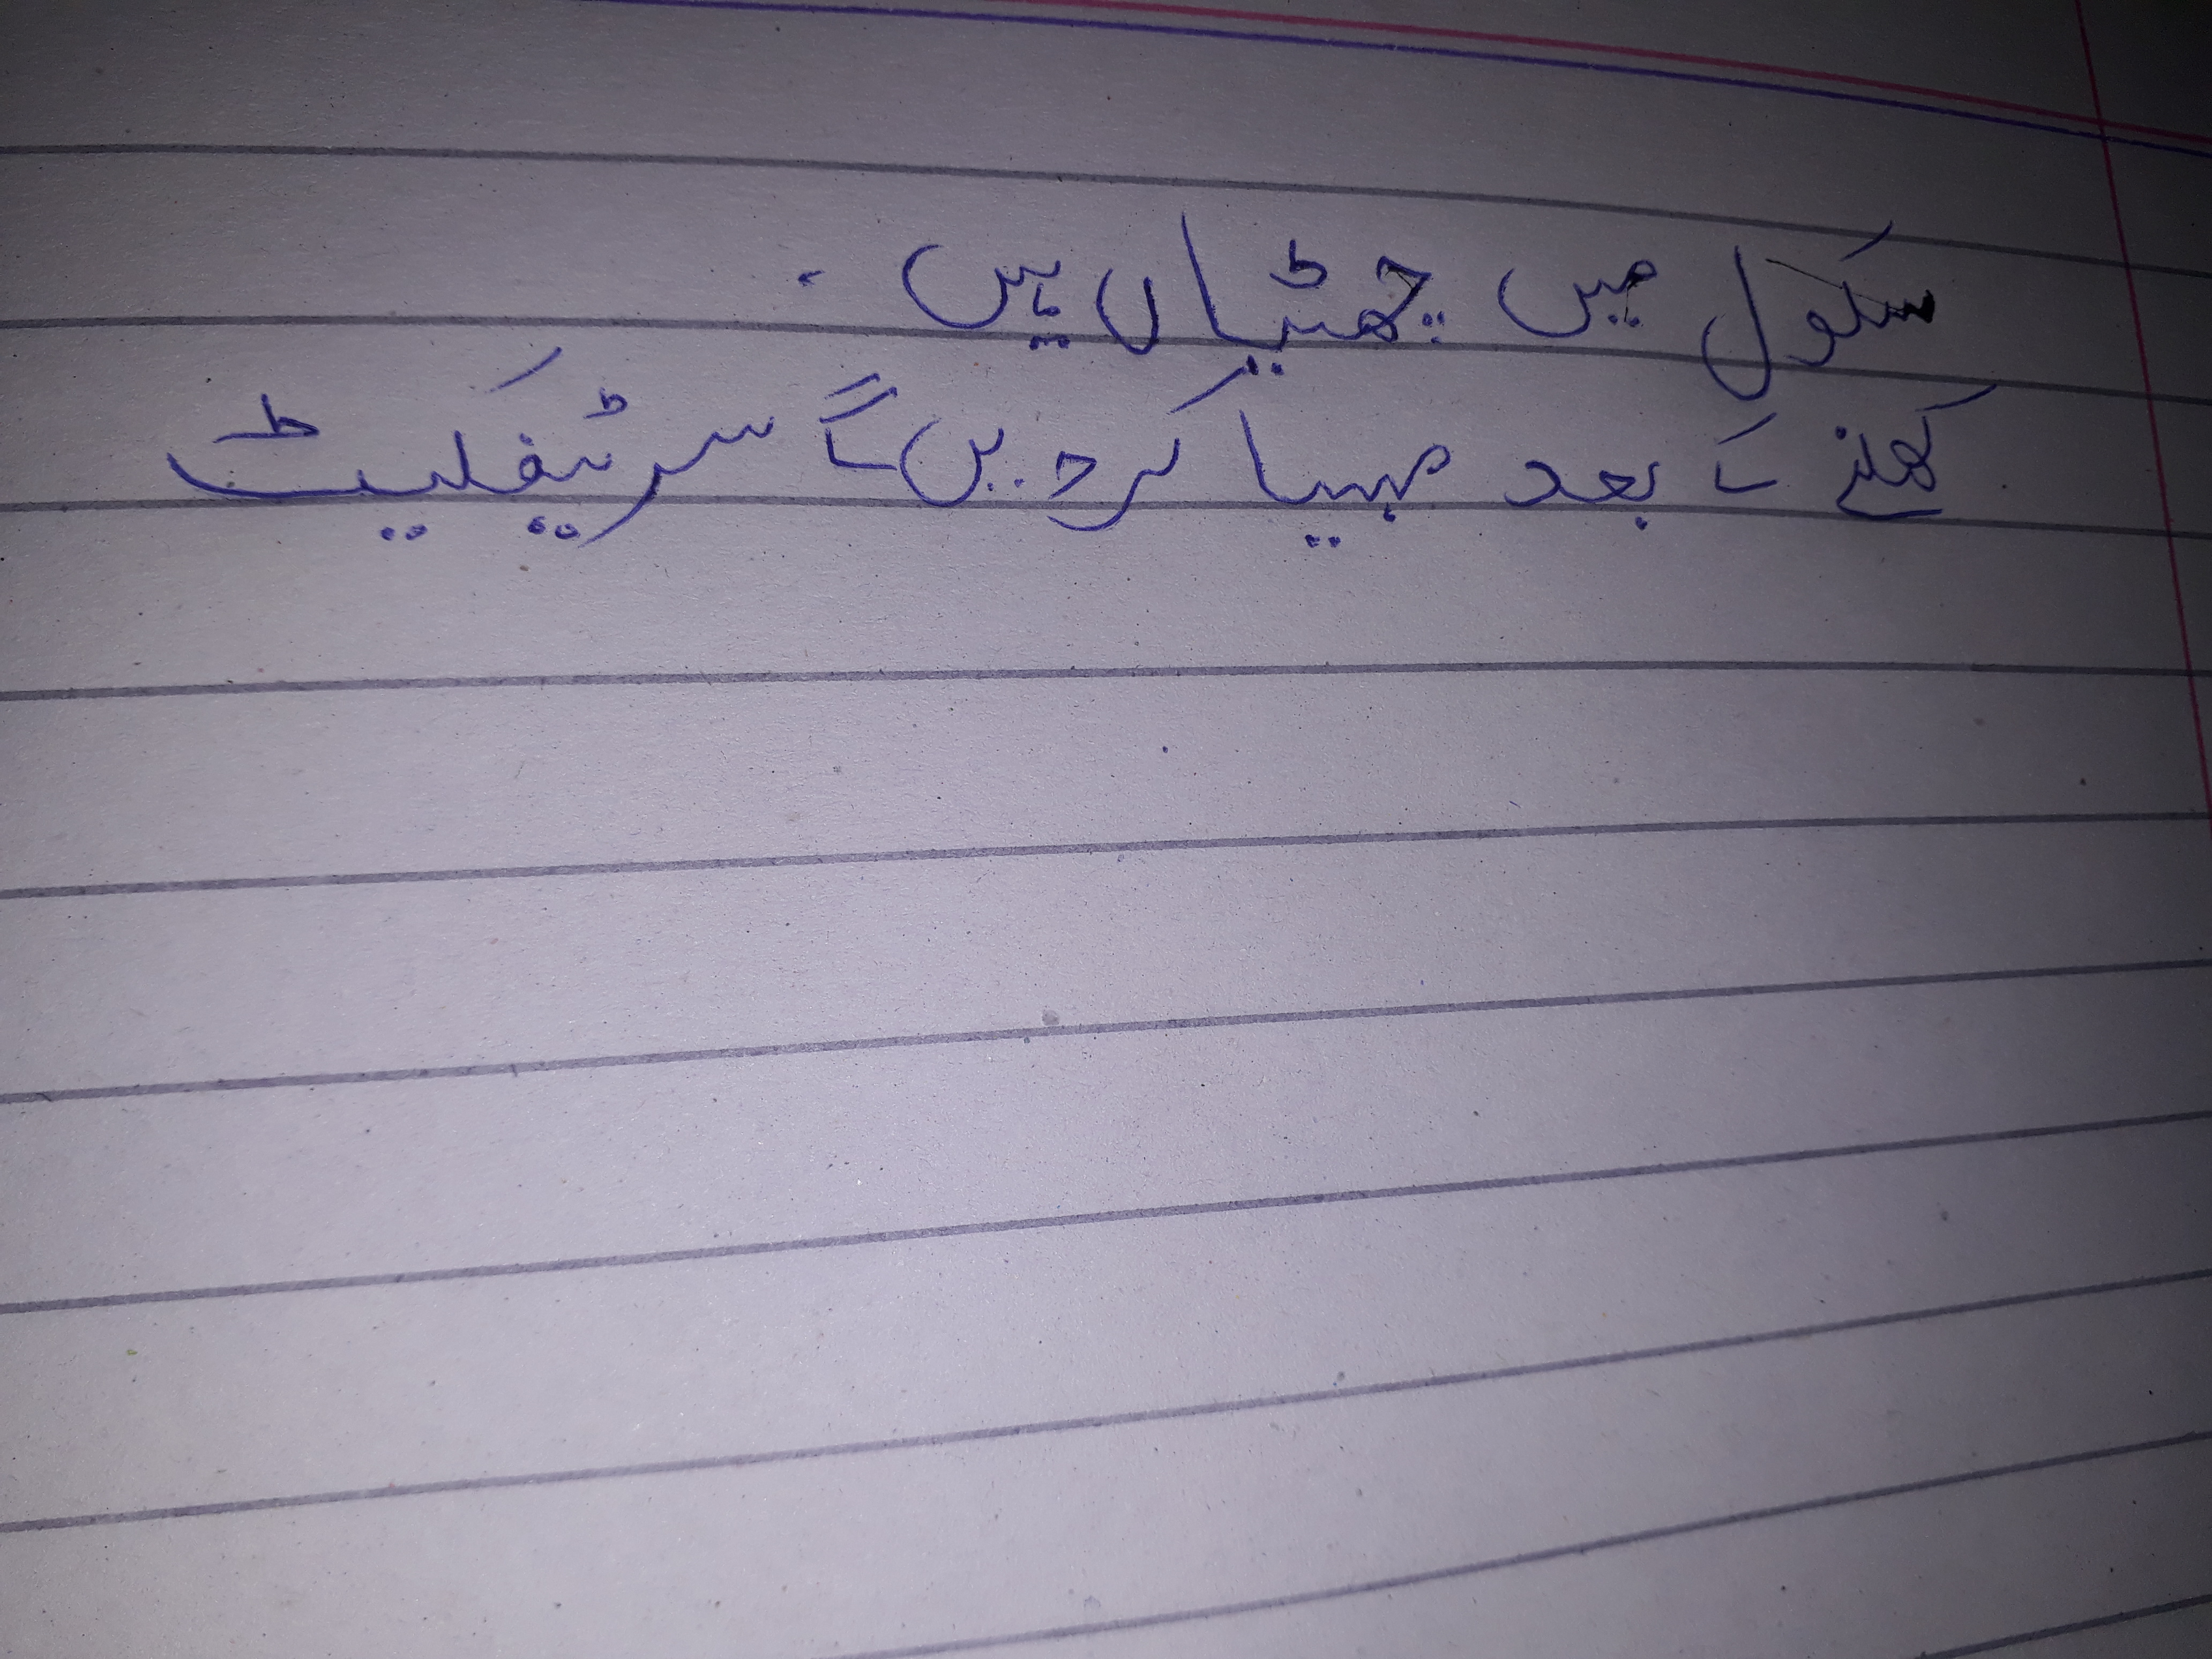 سکول میں چھٹیاں ہیں .
کھلنے کے بعد مہیا کردیں گے سرٹیفکیٹ